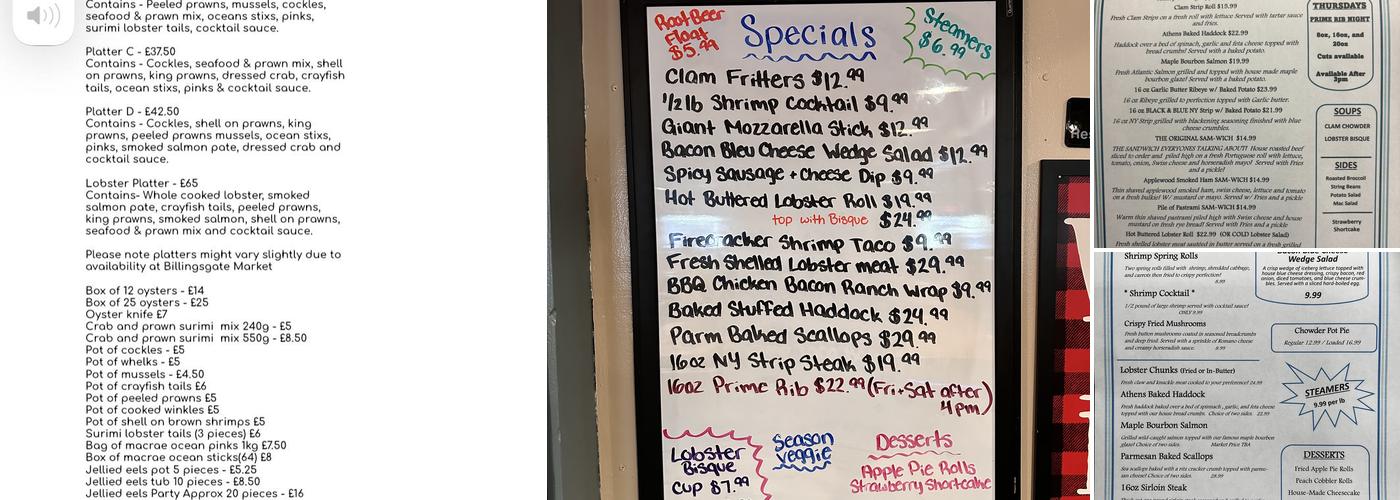 Contains - Peeled prawns, mussels, cockles,
seafood & prawn mix, oceans stixs, pinks,
surimi lobster tails, cocktail sauce.
Platter C - £37.50
Contains - Cockles, seafood & prawn mix, shell
on prawns, king prawns, dressed crab, crayfish
tails, ocean stixs, pinks & cocktail sauce.
Platter D - £42.50
Contains - Cockles, shell on prawns, king
prawns, peeled prawns mussels, ocean stixs,
pinks, smoked salmon pate, dressed crab and
cocktail sauce.
Lobster Platter - £65
Contains- Whole cooked lobster, smoked
salmon pate, crayfish tails, peeled prawns,
king prawns, smoked salmon, shell on prawns,
seafood & prawn mix and cocktail sauce.
Please note platters might vary slightly due to
availability at Billingsgate Market
Box of 12 oysters - £14
Box of 25 oysters - £25
Oyster knife £7
Crab and prawn surimi mix 240g - £5
Crab and prawn surimi mix 550g - £8.50
Pot of cockles - £5
Pot of whelks - £5
Pot of mussels - £4.50
Pot of crayfish tails £6
Pot of peeled prawns £5
Pot of cooked winkles £5
Pot of shell on brown shrimps £5
Surimi lobster tails (3 pieces) £6
Bag of macrae ocean pinks 1kg £7.50
Box of macrae ocean sticks(64) £8
Jellied eels pot 5 pieces - £5.25
Jellied eels tub 10 pieces - £8.50
Jellied eels Party Approx 20 pieces - £16
Root Beer
Float
$5.99
Specials
Steamers
$6.99
Clam Fritters $12.99
1/2 lb Shrimp Cocktail $9.99
Giant Mozzarella Stick $12.99
Bacon Bleu Cheese Wedge Salad $12.99
Spicy Sausage + Cheese Dip $9.99
Hot Buttered Lobster Roll $19.99
top with Bisque $24.99
Firecracker Shrimp Taco $9.99
Fresh Shelled Lobster meat $29.99
BBQ Chicken Bacon Ranch Wrap $9.99
Baked Stuffed Haddock $24.99
Parm Baked Scallops $29.99
16oz NY Strip Steak $19.99
16oz Prime Rib $22.99 (Fri+Sat after
4pm)
Lobster
Bisque
Cup $7.99
Season
Veggie
Desserts
Apple Pie Rolls
Strawberry Shortcake
Clam Strip Roll $15.99
Fresh Clam Strips on a fresh roll with lettuce Served with tartar sauce
and fries.
Athens Baked Haddock $22.99
Haddock over a bed of spinach, garlic and feta cheese topped with
bread crumbs! Served with a baked potato.
Maple Bourbon Salmon $19.99
Fresh Atlantic Salmon grilled and topped with house made maple
bourbon glaze! Served with a baked potato.
16 oz Garlic Butter Ribeye w/ Baked Potato $23.99
16 oz Ribeye grilled to perfection topped with Garlic butter.
16 oz BLACK & BLUE NY Strip w/ Baked Potato $21.99
16 oz NY Strip grilled with blackening seasoning finished with blue
cheese crumbles.
THE ORIGINAL SAM-WICH $14.99
THE SANDWICH EVERYONES TALKING ABOUT! House roasted beef
sliced to order and piled high on a fresh Portuguese roll with lettuce,
tomato, onion, Swiss cheese and horseradish mayo! Served with Fries
and a pickle!
Applewood Smoked Ham SAM-WICH $14.99
Thin shaved applewood smoked ham, swiss cheese, lettuce and tomato
on a fresh bulkie! W/ mustard or mayo. Served w/ Fries and a pickle
Pile of Pastrami SAM-WICH $14.99
Warm thin shaved pastrami piled high with Swiss cheese and house
mustard on fresh rye bread! Served with Fries and a pickle
Hot Buttered Lobster Roll $22.99 (OR COLD Lobster Salad)
Fresh shelled lobster meat sautéed in butter served on a fresh grilled
THURSDAYS
PRIME RIB NIGHT
8oz, 16oz, and
20oz
Cuts available
Available After
3pm
SOUPS
CLAM CHOWDER
LOBSTER BISQUE
SIDES
Roasted Broccoli
String Beans
Potato Salad
Mac Salad
Strawberry
Shortcake
Shrimp Spring Rolls
Two spring rolls filled with shrimp, shredded cabbage,
and carrots then fried to crispy perfection!
8.99
* Shrimp Cocktail *
1/2 pound of large shrimp served with cocktail sauce!
ONLY 9.99
Crispy Fried Mushrooms
Fresh button mushrooms coated in seasoned breadcrumbs
and deep fried. Served with a sprinkle of Romano cheese
and creamy horseradish sauce. 8.99
Lobster Chunks (Fried or In-Butter)
Fresh claw and knuckle meat cooked to your preference! 24.99
Athens Baked Haddock
Fresh haddock baked over a bed of spinach, garlic, and feta cheese
topped with our house bread crumbs. Choice of two sides. 22.99
Maple Bourbon Salmon
Grilled wild-caught salmon topped with our famous maple bourbon
glaze! Choice of two sides. Market Price TBA
Parmesan Baked Scallops
Sea scallops baked with a ritz cracker crumb topped with parme-
san cheese! Choice of two sides. 28.99
16oz Sirloin Steak
Wedge Salad
A crisp wedge of iceberg lettuce topped with
house blue cheese dressing, crispy bacon, red
onion, diced tomatoes, and blue cheese crum-
bles. Served with a sliced hard-boiled egg.
9.99
Chowder Pot Pie
Regular 12.99 / Loaded 16.99
STEAMERS
9.99 per lb
DESSERTS
Fried Apple Pie Rolls
Peach Cobbler Rolls
House-Made Cheesecake